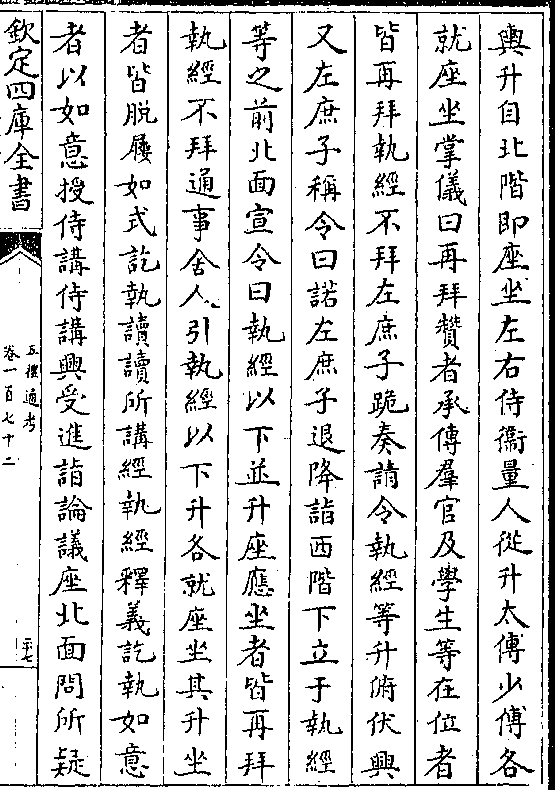 輿升自北階即座坐左右侍衞量人從升太傅少傅各
就座坐掌儀曰再拜贊者承傳羣官及學生等在位者
皆再拜執經不拜左庶子跪奏請令執經等升俯伏興
又左庶子稱令曰諾左庶子退降詣西階下立于執經
等之前北面宣令曰執經以下並升座應坐者皆再拜
執經不拜通事舍人引執經以下升各就座坐其升坐
者皆脫屨如式訖執讀讀所講經執經釋義訖執如意
者以如意授侍講侍講興受進詣論議座北面問所疑
欽定四庫全書
五禮通考
卷一百七十二
三十七